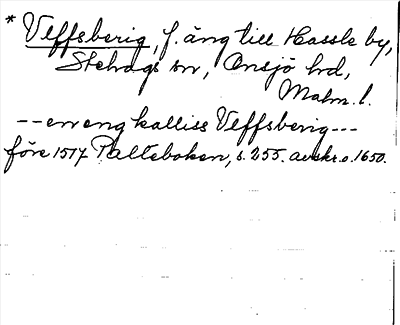 * Ulffsberig, f. äng till Hassle by,
Stehags sn, Onsjö hd,
Malm. l.
--en eng kalliss Ulffsberig---
före 1517 Palteboken, s. 255. avskr. o. 1650.